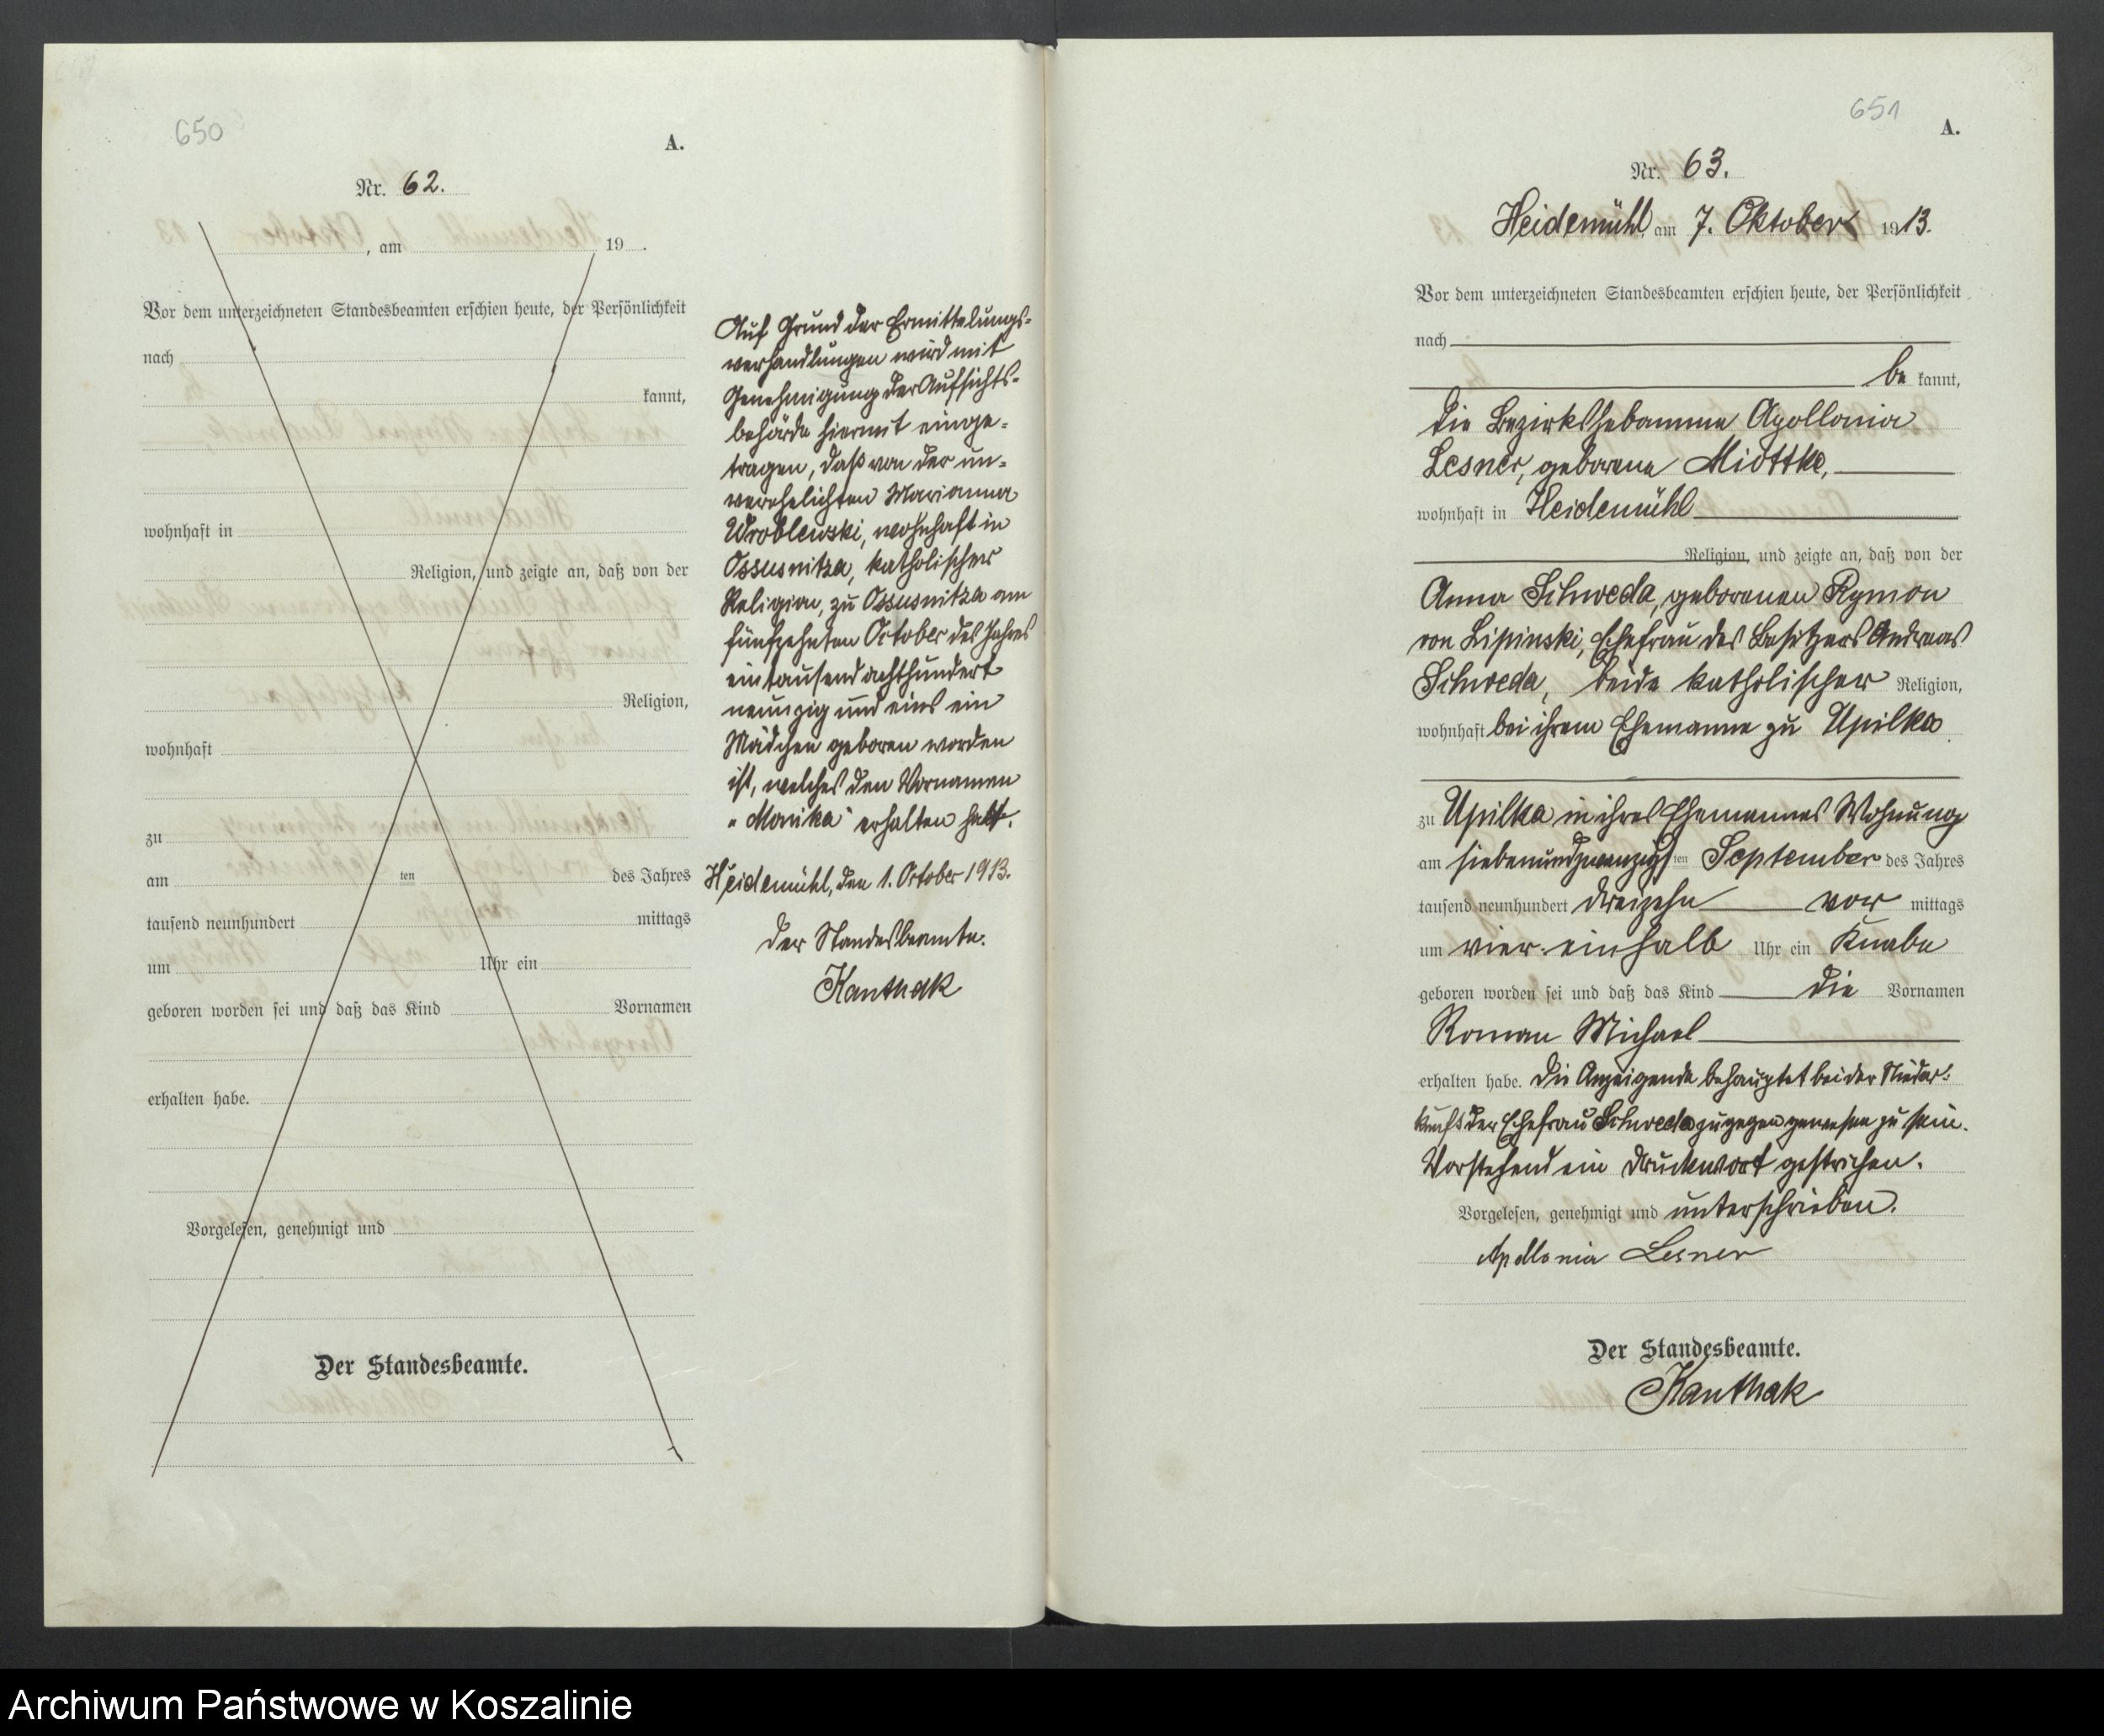 650
A.
Nr. 62.
, am 19 .
Vor dem unterzeichneten Standesbeamten erschien heute, der Persönlichkeit
nach
kannt,
wohnhaft in
Religion, und zeigte an, daß von der
Religion,
wohnhaft
zu
am ten des Jahres
tausend neunhundert mittags
um Uhr ein
geboren worden sei und daß das Kind Vornamen
erhalten habe.
Vorgelesen, genehmigt und
Der Standesbeamte.
Auf Grund der Ermittelungs-
verhandlungen wird mit
Genehmigung der Aufsichts-
behörde hiermit einge-
tragen, daß von der un-
verehelichten Marianna
Wroblewski, wohnhaft in
Ossusnitza, katholischer
Religion, zu Ossusnitza am
fünfzehnten October des Jahres
eintausend achthundert
neunzig und eins ein
Mädchen geboren worden
ist, welches den Vornamen
"Monika" erhalten hat.
Heidemühl, den 1. October 1913.
Der Standesbeamte.
Kanthak
651
A.
Nr. 63.
Heidemühl, am 7. Oktober 1913.
Vor dem unterzeichneten Standesbeamten erschien heute, der Persönlichkeit
nach
be kannt,
die Bezirkshebamme Apollonia
Lesner, geborene Miottke,
wohnhaft in Heidemühl
Religion, und zeigte an, daß von der
Anna Schweda, geborenen Rymon
von Lipinski, Ehefrau des Besitzers Andreas
Schweda, beide katholischer Religion,
wohnhaft bei ihrem Ehemanne zu Upilka
zu Upilka in ihres Ehemannes Wohnung
am siebenundzwanzigsten September des Jahres
tausend neunhundert dreizehn vor mittags
um vier einhalb Uhr ein Knabe
geboren worden sei und daß das Kind die Vornamen
Roman Michael
erhalten habe. Die Anzeigende behauptet bei der Nieder-
kunft der Ehefrau Schweda zugegen gewesen zu sein.
Vorstehend ein Druckwort gestrichen.
Vorgelesen, genehmigt und unterschrieben.
Apollonia Lesner
Der Standesbeamte.
Kanthak
Archiwum Państwowe w Koszalinie